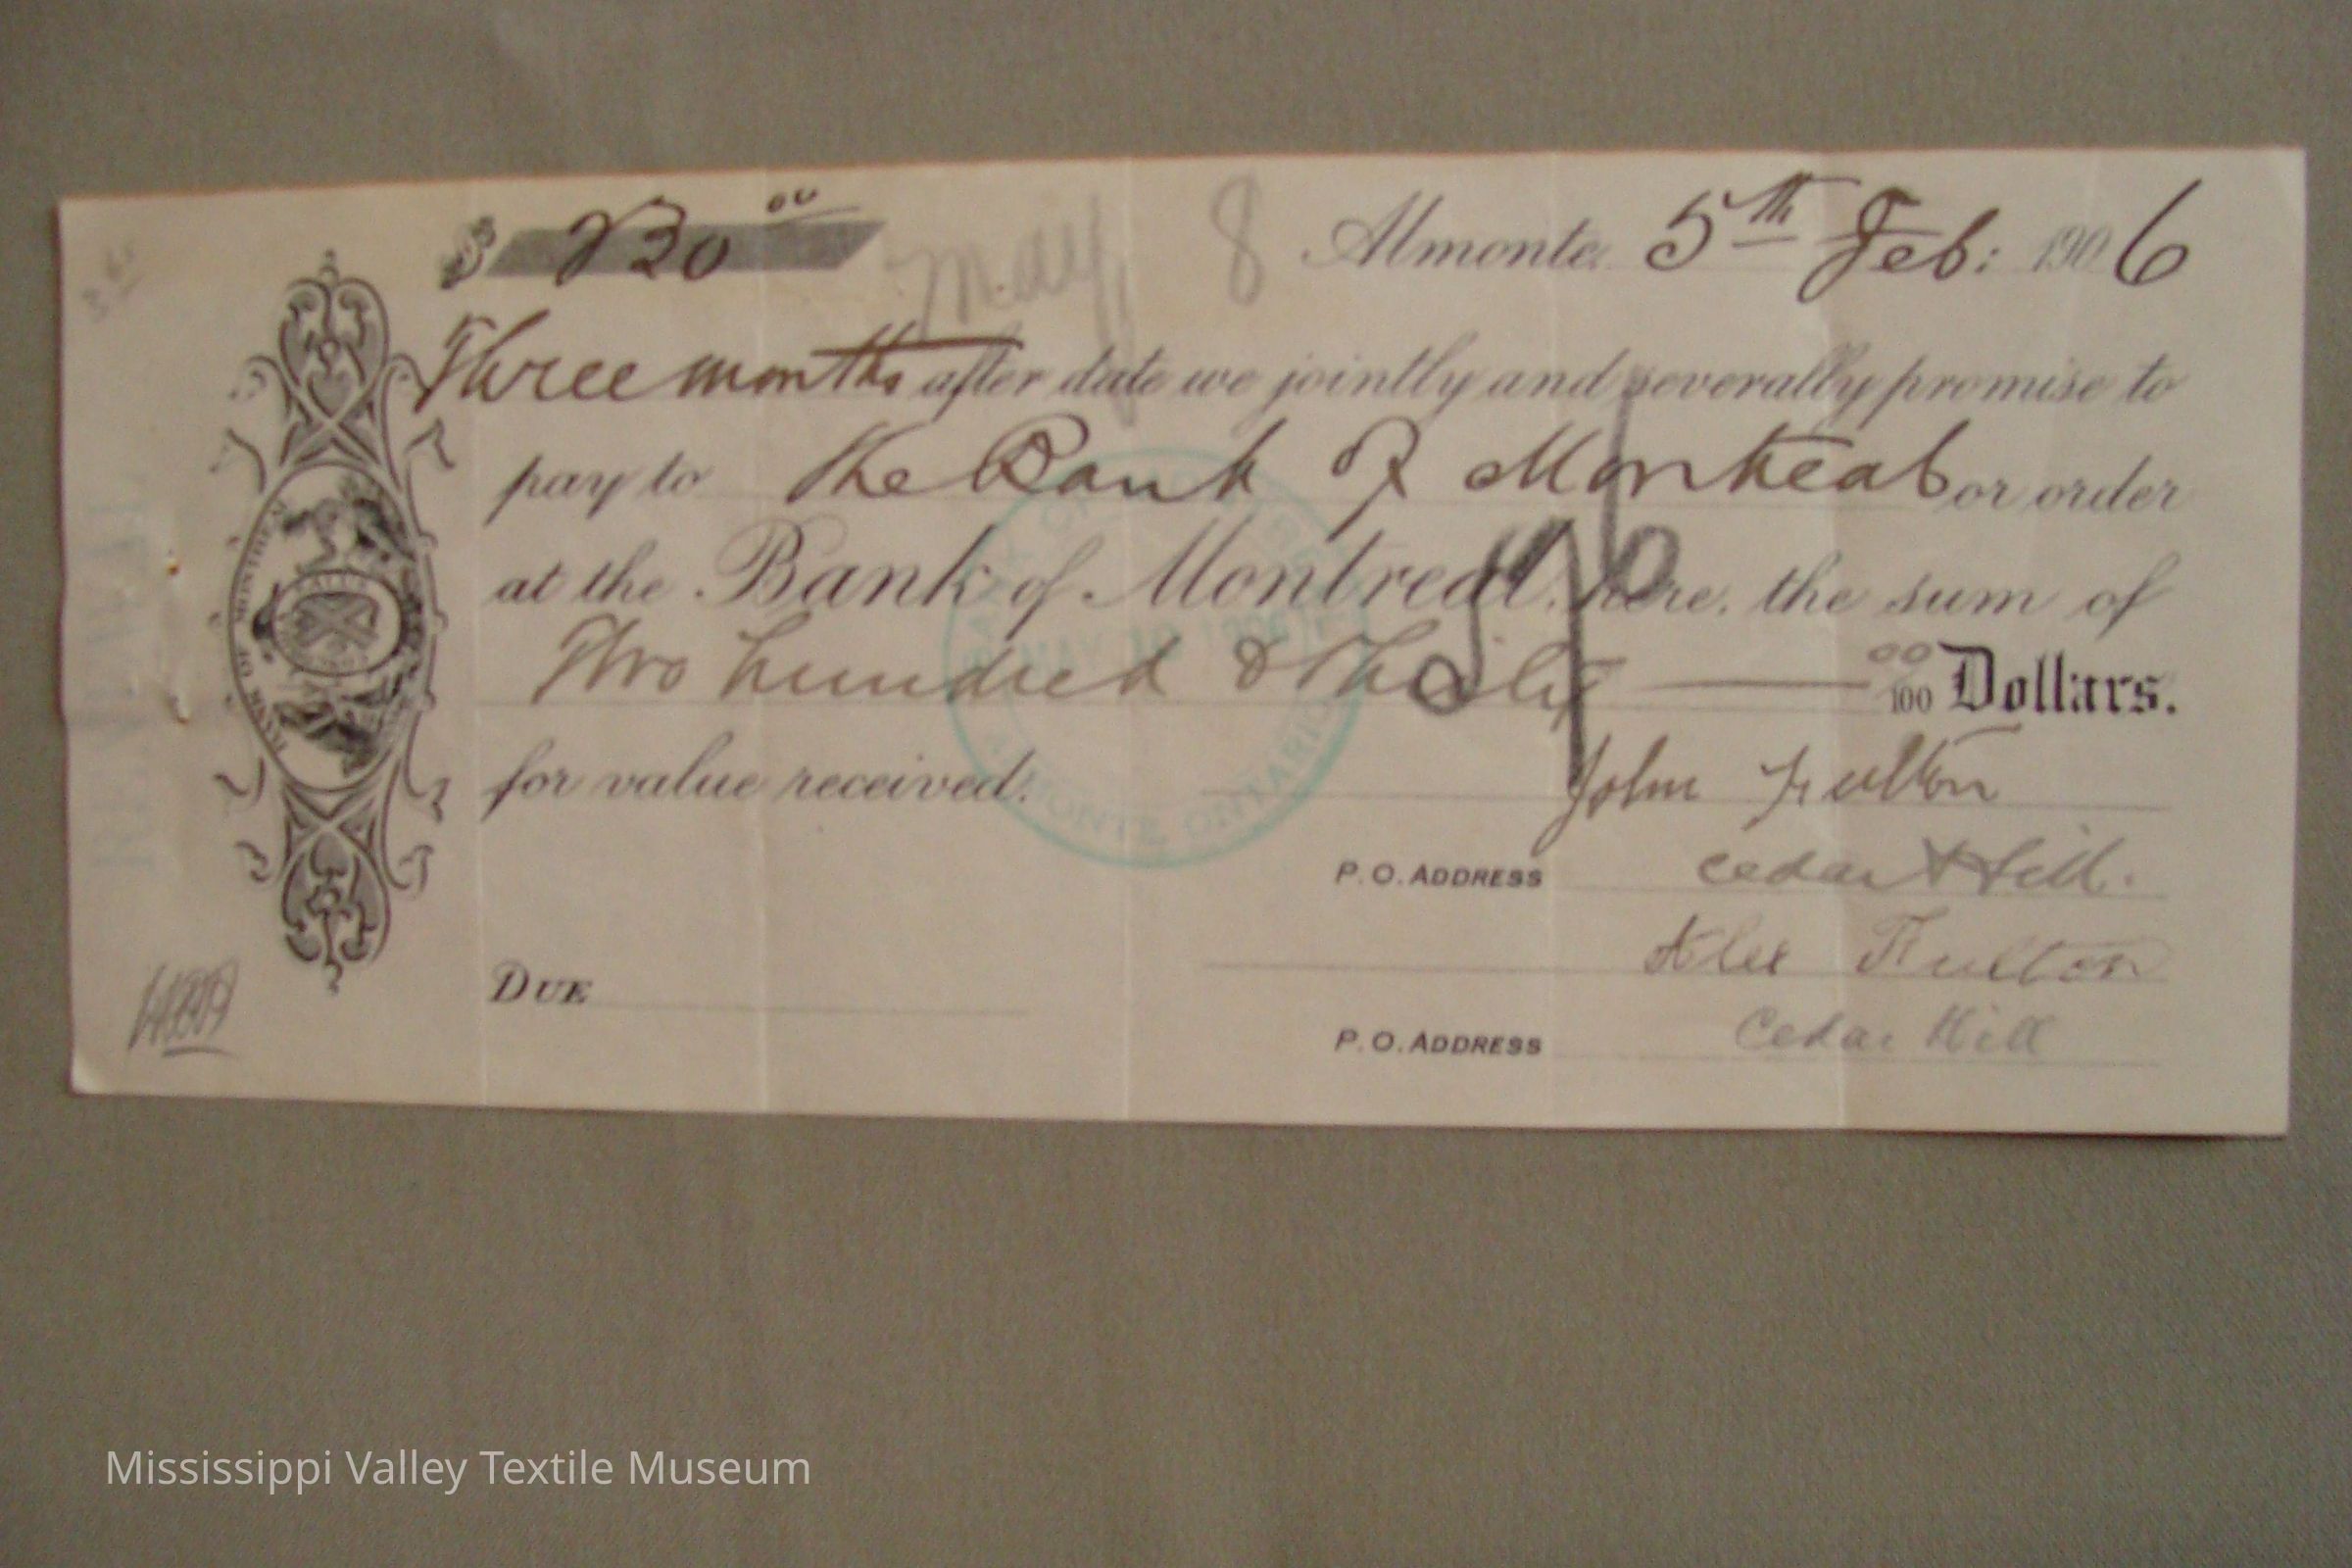 $ 230 00 May 8 Almonte 5th Feb: 1906
Three months after date we jointly and severally promise to
pay to The Bank of Montreal or order
at the Bank of Montreal, here, the sum of
Two hundred & thirty 00/100 Dollars.
for value received. John Fulton
P.O. ADDRESS Cedar Hill.
Alex Fulton
DUE
P.O. ADDRESS Cedar Hill
BANK OF MONTREAL
ALMONTE ONTARIO
Mississippi Valley Textile Museum